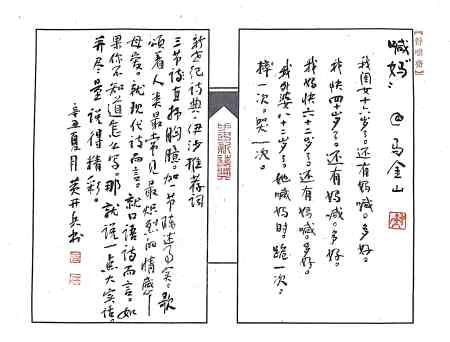 喊妈 @马金山
我闺女十六岁了。还有妈喊。多好。
我快四十岁了。还有妈喊。多好。
我妈快六十二岁了。还有妈喊。多好。
我外婆八十二岁了。她喊妈时。跪一次。
摔一次。哭一次。
新世纪诗典·伊沙推荐词
三节诗直抒胸臆加一节陈述事实。歌
颂着人类最常见最炽烈的情感。
母爱。就现代诗而言。就口语诗而言。如
果你不知道怎么写。那就说一点大实话。
并尽量说得精彩。
辛丑夏月黄开兵书